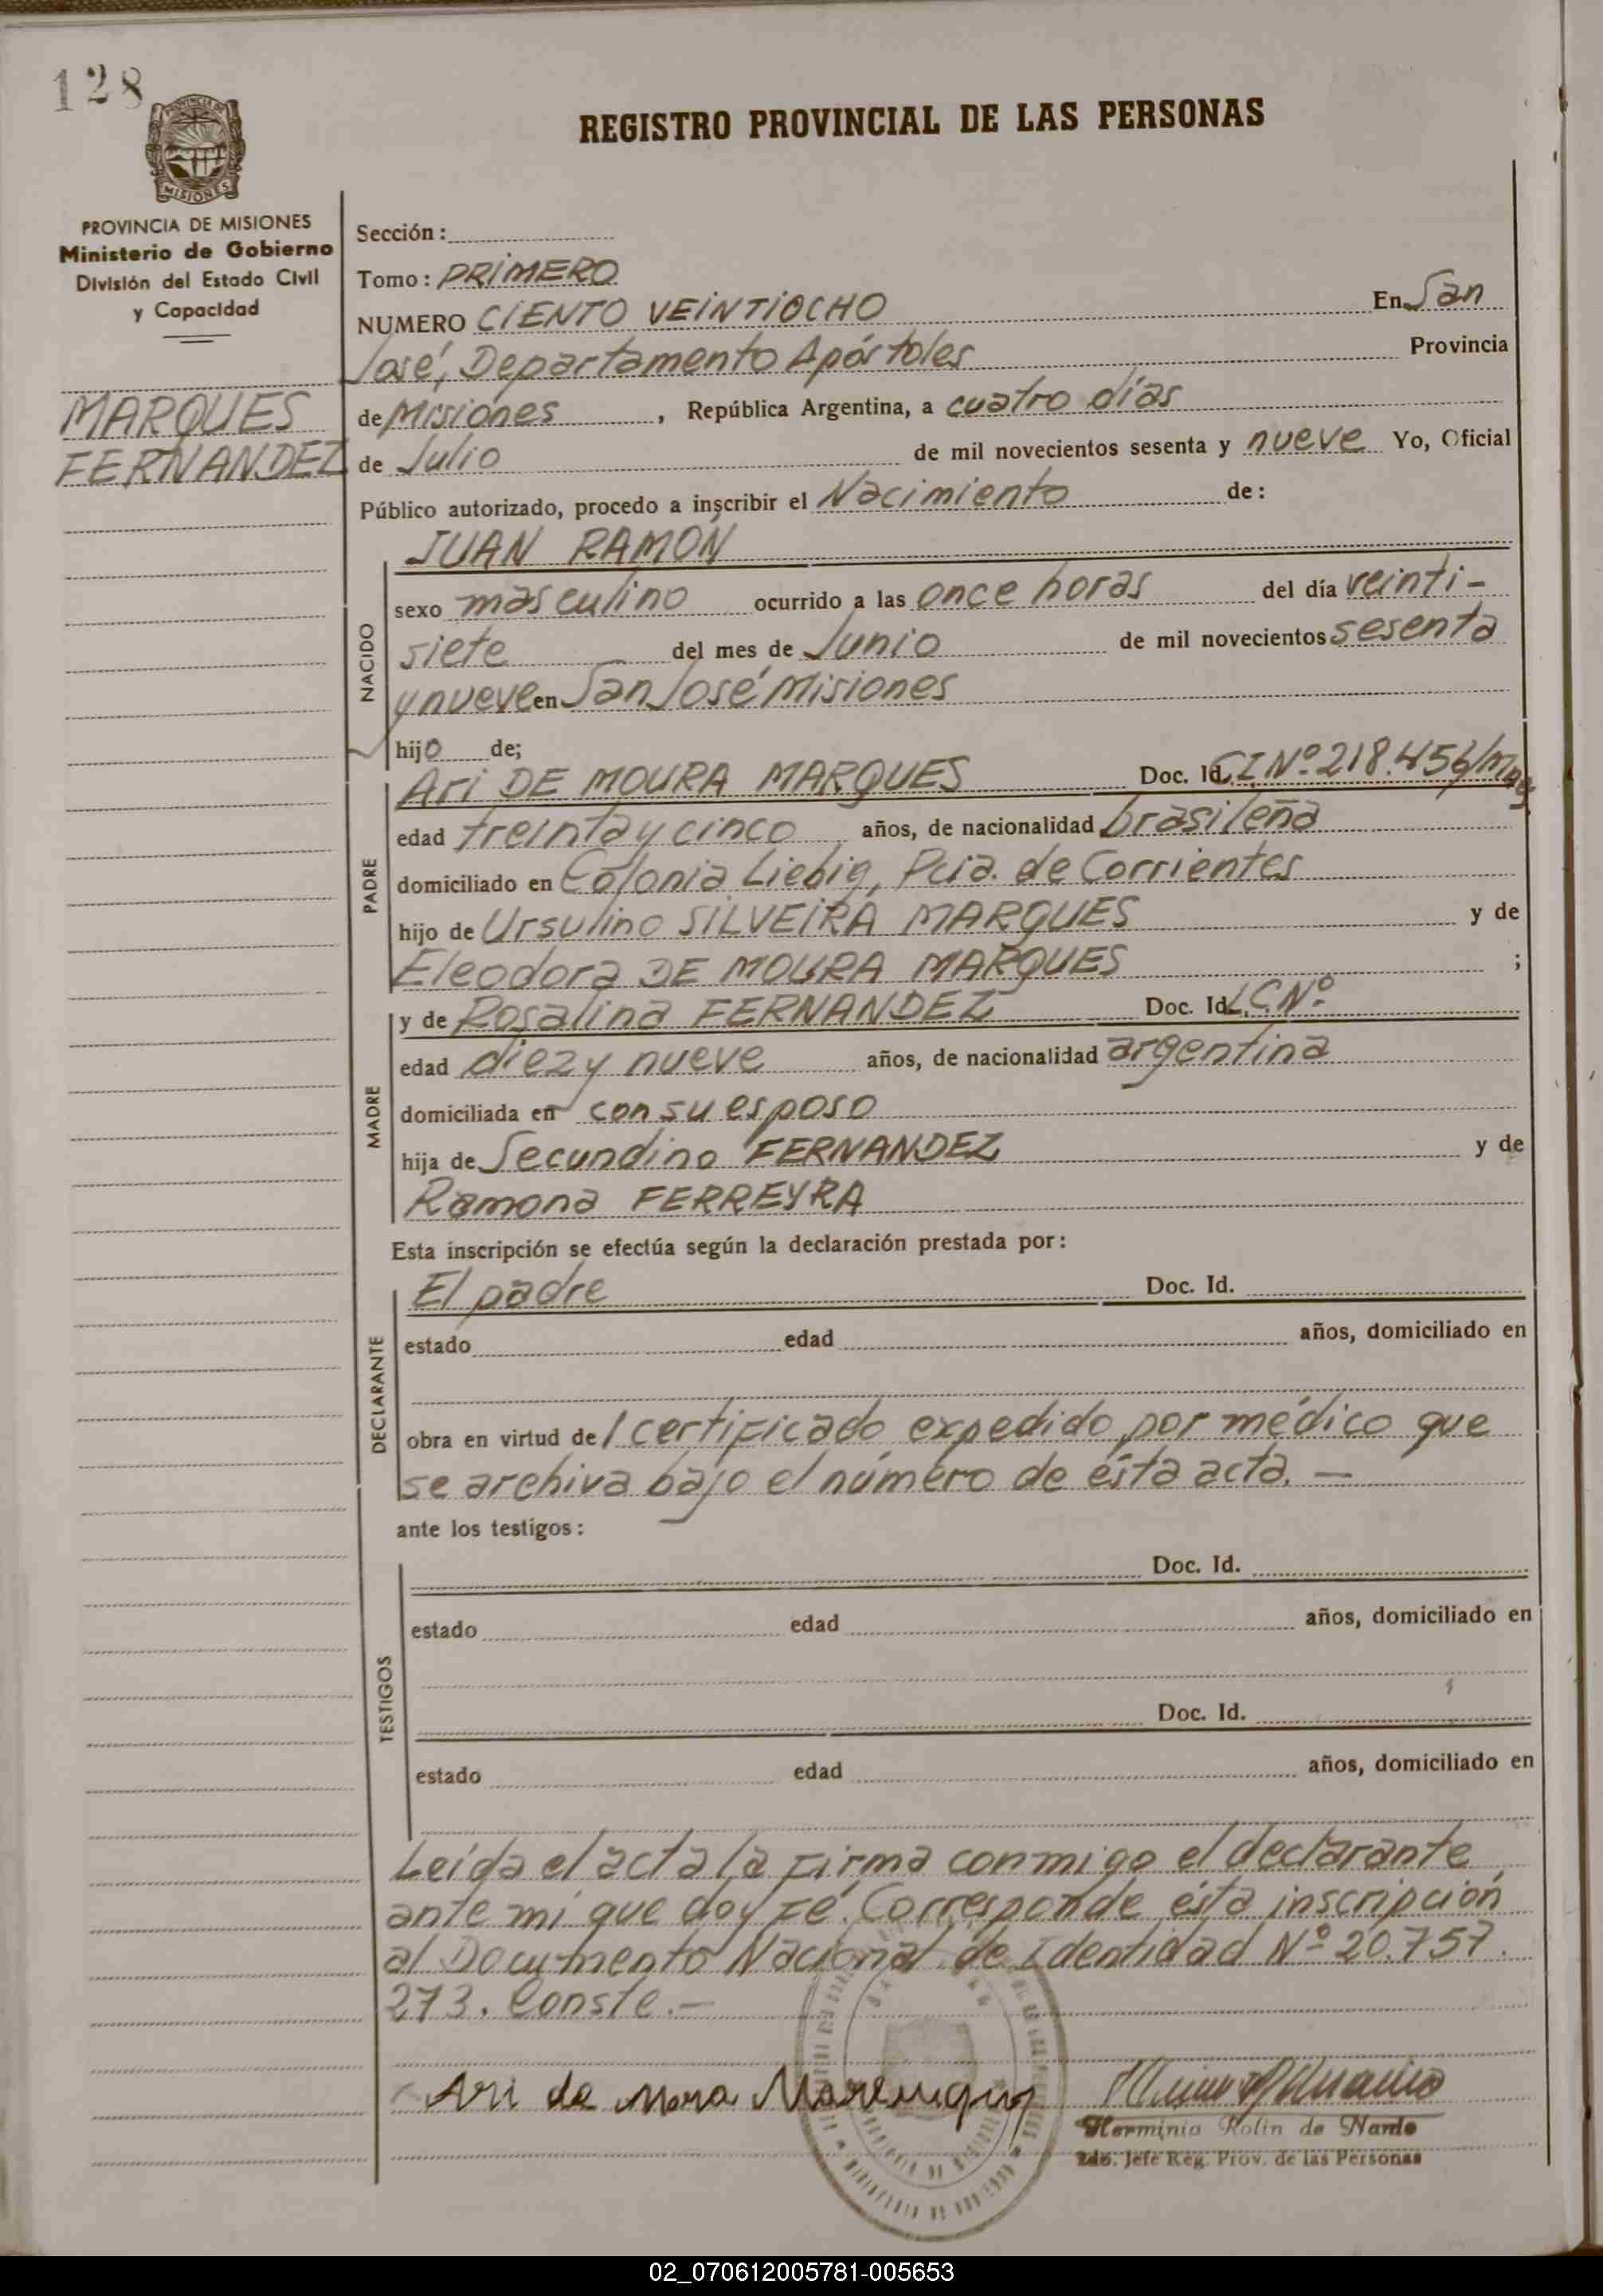 128
PROVINCIA DE MISIONES
Ministerio de Gobierno
División del Estado Civil
y Capacidad
MARQUES
FERNANDEZ
REGISTRO PROVINCIAL DE LAS PERSONAS
Sección:
Tomo: PRIMERO
NUMERO CIENTO VEINTIOCHO En San
José, Departamento Apóstoles Provincia
de Misiones, República Argentina, a cuatro días
de Julio de mil novecientos sesenta y nueve Yo, Oficial
Público autorizado, procedo a inscribir el Nacimiento de:
JUAN RAMÓN
NACIDO
sexo masculino ocurrido a las once horas del día veinti-
siete del mes de Junio de mil novecientos sesenta
y nueve en San José Misiones
hijo de;
Ari DE MOURA MARQUES Doc. Id. C.I Nº 218.456/
PADRE
edad treinta y cinco años, de nacionalidad brasileña
domiciliado en Colonia Liebig, Pcia. de Corrientes
hijo de Ursulino SILVEIRA MARQUES y de
Eleodora DE MOURA MARQUES ;
y de Rosalina FERNANDEZ Doc. Id. L.C. Nº
MADRE
edad diez y nueve años, de nacionalidad argentina
domiciliada en con su esposo
hija de Secundino FERNANDEZ y de
Ramona FERREYRA
Esta inscripción se efectúa según la declaración prestada por:
El padre Doc. Id.
DECLARANTE
estado edad años, domiciliado en
obra en virtud de 1 certificado expedido por médico que
se archiva bajo el número de ésta acta. —
ante los testigos:
Doc. Id.
TESTIGOS
estado edad años, domiciliado en
Doc. Id.
estado edad años, domiciliado en
Leída el acta la firma conmigo el declarante
ante mí que doy fé. Corresponde ésta inscripción
al Documento Nacional de Identidad Nº 20.757.
273. Conste.—
Ari de Mora
Herminia Rolin de Nardo
2do. Jefe Reg. Prov. de las Personas
02_070612005781-005653